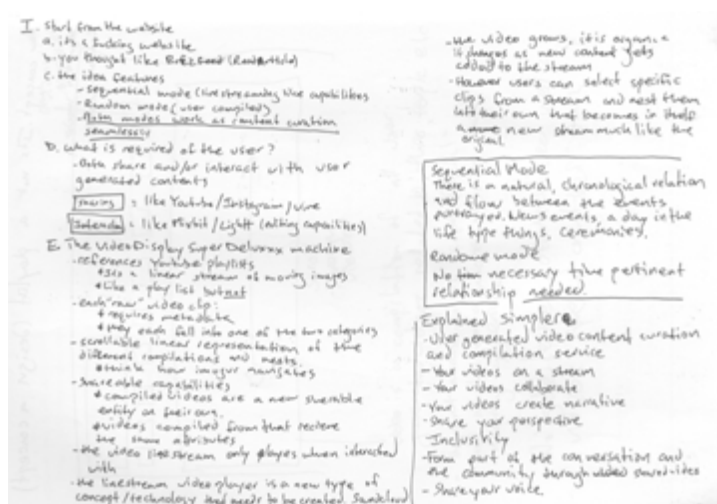 I. Start from the website
a. its a fucking website
b. you thought like
c. the idea features
- Sequential mode (livestreaming like capabilities
- Random mode (user compiled)
- Both modes work as content curation
seamlessly
D. what is required of the user?
- Both share and/or interact with user
generated contents
= like Youtube/Instagram/vine
= like Mixbit/ (editing capabilities)
E. The video Display Super Deluxxx machine
- references Youtube playlists
* Its a linear stream of moving images
* Like a play list but not
- each "raw" video clip:
* requires metadata
* they each fall into one of the two categories
- scrollable linear representation of the
different compilations and nests.
* think how imgur navigates
- Shareable capabilities
* compiled videos are a new shareable
entity on their own.
* videos compiled from that recieve
the same attributes
- the video livestream only players when interacted
with
- the livestream video player is a new type of
concept/technology that needs to be created.
- the video grows, it is organic &
it changes as new content gets
added to the stream
- However users can select specific
clips from a stream and nest them
into their own that becomes in itself
a new stream much like the
original.
Sequential Mode
There is a natural, chronological relation
and flow between the events
portrayed. News events, a day in the
life type things, ceremonies,
Randome mode
No necessary time pertinent
relationship needed.
Explained simplere
- User generated video content curation
and compilation service
- Your videos on a stream
- Your videos collaborate
- Your videos create narrative
- Share your perspective
- Inclusivity
- Form part of the conversation and
the community through shared video
- Share your voice.